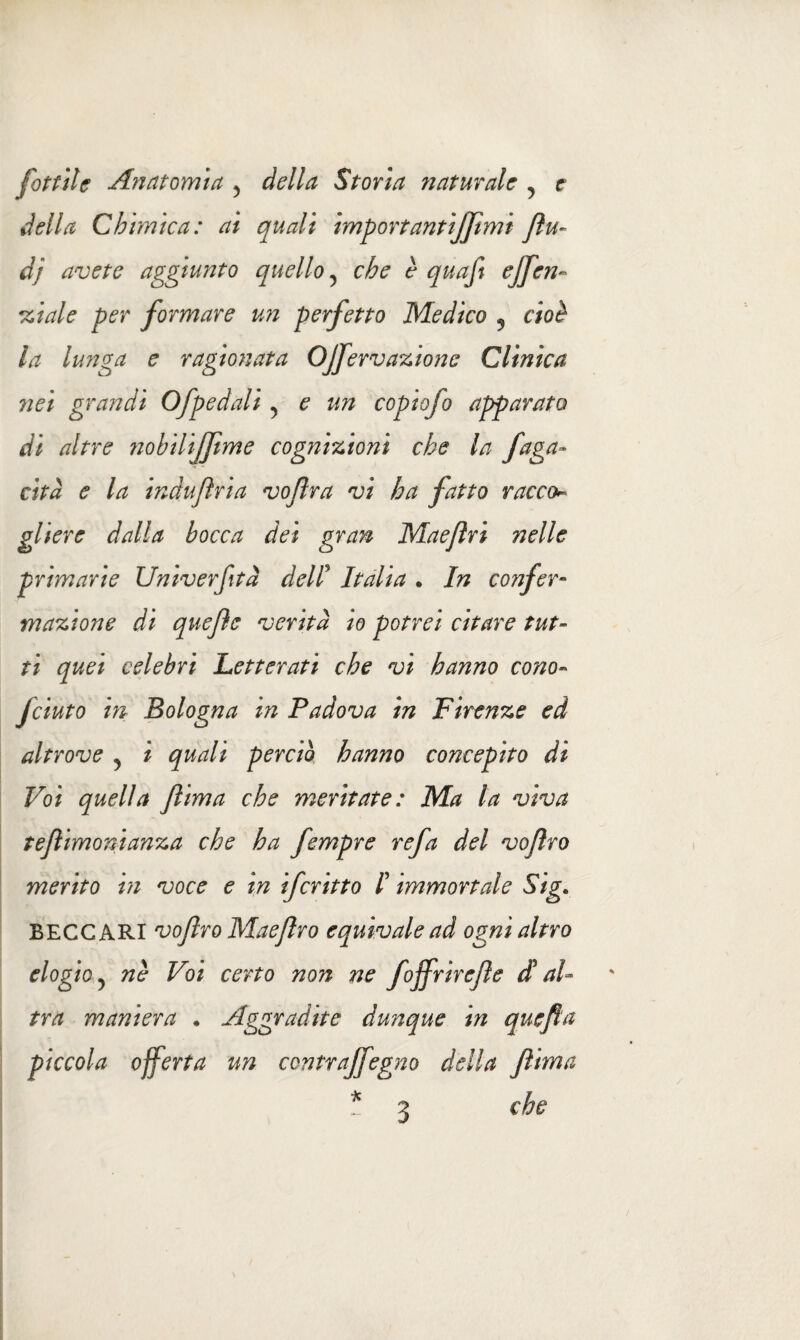 ſottile Anatomia, della Storia naturale, e
della Chimica: ai quali importantiſſimi ſtu-
dj avete aggiunto quello, che è quaſi eſſen-
ziale per formare un perfetto Medico, cioè
la lunga e ragionata Oſſervazione Clinica
nei grandi Oſpedali, e un copioſo apparato
di altre nobiliſſime cognizioni che la ſaga-
cità e la induſtria voſtra vi ha fatto racco-
gliere dalla bocca dei gran Maeſtri nelle
primarie Univerſità dell' Italia. In confer-
mazione di queſte verità io potrei citare tut-
ti quei celebri Letterati che vi hanno cono-
ſciuto in Bologna in Padova in Firenze ed
altrove, i quali perciò hanno concepito di
Voi quella ſtima che meritate: Ma la viva
teſtimonianza che ha ſempre reſa del voſtro
merito in voce e in iſcritto l' immortale Sig.
BECCARI voſtro Maeſtro equivale ad ogni altro
elogio, nè Voi certo non ne ſoffrireſte d' al-
tra maniera. Aggradite dunque in queſta
piccola offerta un contraſſegno della ſtima
* 3 che